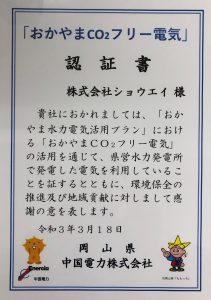 「おかやまCO2フリー電気」
認証書
株式会社ショウエイ 様
貴社におかれましては、「おか
やま水力電気活用プラン」における
「おかやまCO2フリー電気」
の活用を通じて、県営水力発電所
で発電した電気を利用していること
を証するとともに、環境保全の
推進及び地域貢献に対しまして感
謝の意を表します。
令和3年3月18日
岡山県
中国電力株式会社
Energia
中国電力